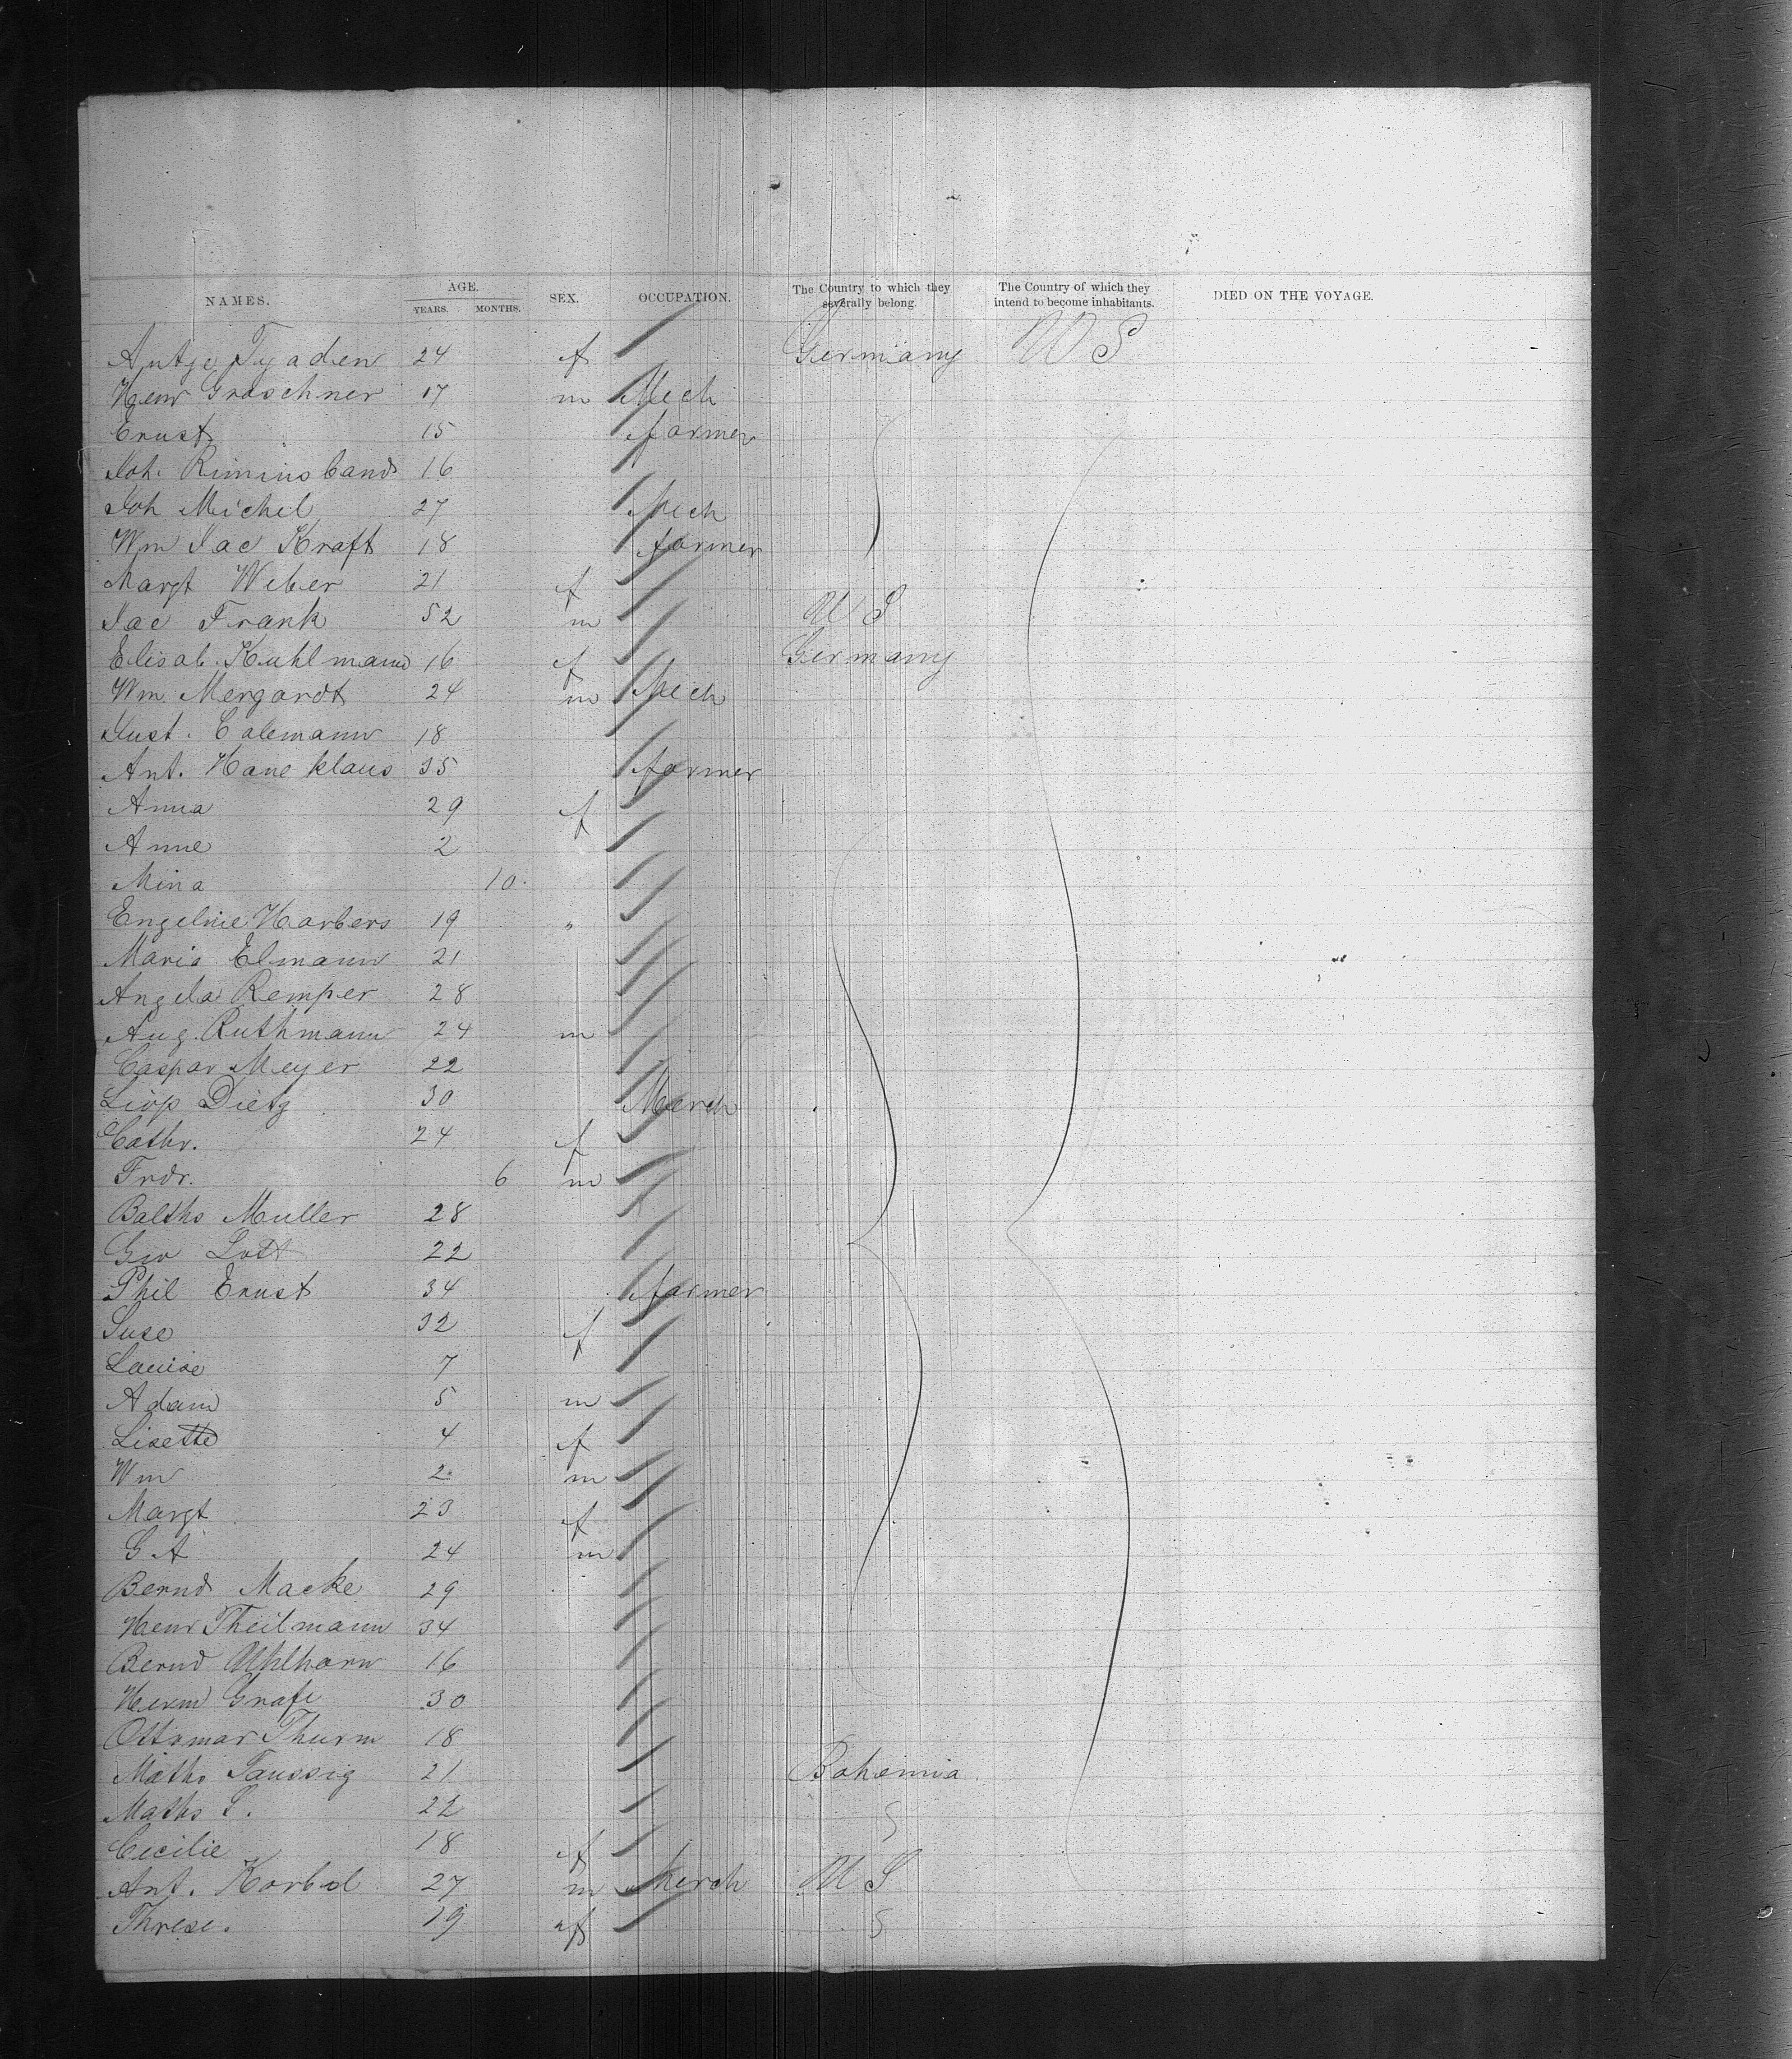 NAMES. AGE. YEARS. MONTHS. SEX. OCCUPATION. The Country to which they severally belong. The Country of which they intend to become inhabitants. DIED ON THE VOYAGE.
Antje Tyaden 24 f Germany U S
Henr Graschner 17 m Mech
Ernst 15 farmer
Joh. 16
Joh Michel 27 Mech
Wm Jac Kraft 18 farmer
Margt Weber 21 f
Jac Frank 52 m U S
Elisab. Kuhlmann 16 f Germany
Wm Mergardt 24 m Mech
Just. Calemann 18
Ant. Hane klaus 35 farmer
Anna 29 f
Anne 2
Mina 10
Engeline Harbers 19 "
Maria Elmann 21
Angela Remper 28
Aug. Ruthmann 24 m
Caspar Meyer 22
Dietz 30 Merch
Cathr. 24 f
Frdr. 6 m
Balths Muller 28
Geo Lott 22
Phil Ernst 34 farmer
Suse 32 f
Louise 7
Adam 5 m
Lisette 4 f
Wm 2 m
Margt 23 f
G A 24 m
Bernd Macke 29
Henr Theilmann 34
Bernd Uhlhorn 16
Herm Grafe 30
Ottomar Thurm 18
Maths Taussig 21 Bohemia
Maths S. 22
Cecilie 18 f
Ant. Korbel 27 m Merch U S
Threse. 19 f